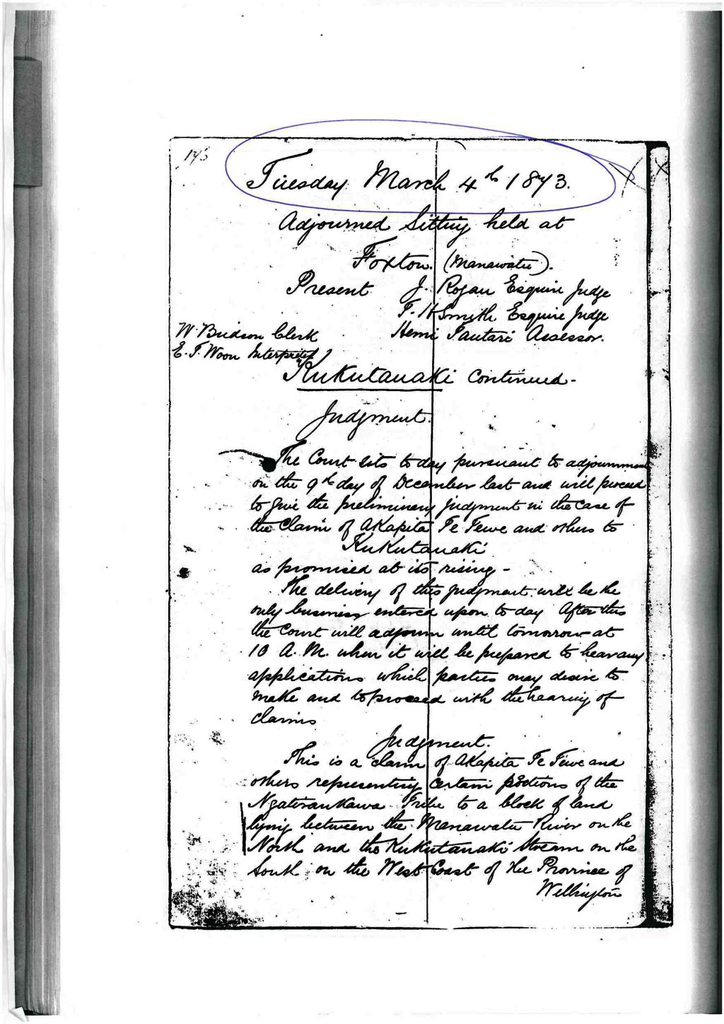 173
Tuesday March 4th 1873.
Adjourned Sitting held at
Foxton. (Manawatu).
Present J. Rogan Esquire Judge
T. H Smith Esquire Judge
Hemi Tautari Assessor.
W. Bridson Clerk
E. T. Woon Interpreter
Kukutauaki continued -
Judgment.
The Court sits to day pursuant to adjournment
on the 9th day of December last and will proceed
to give the preliminary judgment in the case of
the Claim of Akapita Te Tewe and others to
Kukutauaki
as promised at its rising -
The delivery of this judgment will be the
only business entered upon to day After this
the Court will adjourn until tomorrow at
10 A.M. when it will be prepared to hear any
applications which parties may desire to
make and to proceed with the hearing of
claims
Judgment.
This is a claim of Akapita Te Tewe and
others representing certain portions of the
Ngatiraukawa Tribe to a block of land
lying between the Manawatu River on the
North and the Kukutauaki Stream on the
South on the West Coast of the Province of
Wellington